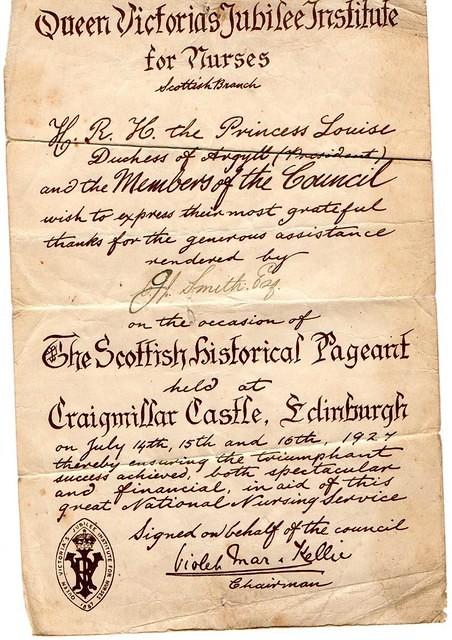 Queen Victoria's Jubilee Institute
for Nurses
Scottish Branch
H. R. H. the Princess Louise
Duchess of Argyll (President)
and the Members of the Council
wish to express their most grateful
thanks for the generous assistance
rendered by
Smith. Esq.
on the occasion of
The Scottish Historical Pageant
held at
Craigmillar Castle, Edinburgh
on July 14th, 15th and 16th, 1927
thereby ensuring the triumphant
success achieved, both spectacular
and financial, in aid of this
great National Nursing Service
Signed on behalf of the council
Violet Mar & Kellie
Chairman
QUEEN VICTORIA'S JUBILEE INSTITUTE FOR NURSES